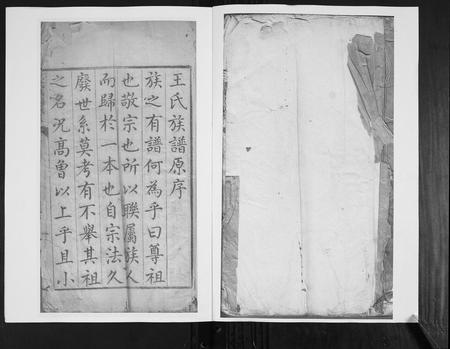 王氏族譜原序
族之有譜何為乎曰尊祖
也敬宗也所以聯屬族人
而歸於一本也自宗法久
廢世系莫考有不舉其祖
之名况高曾以上乎且小